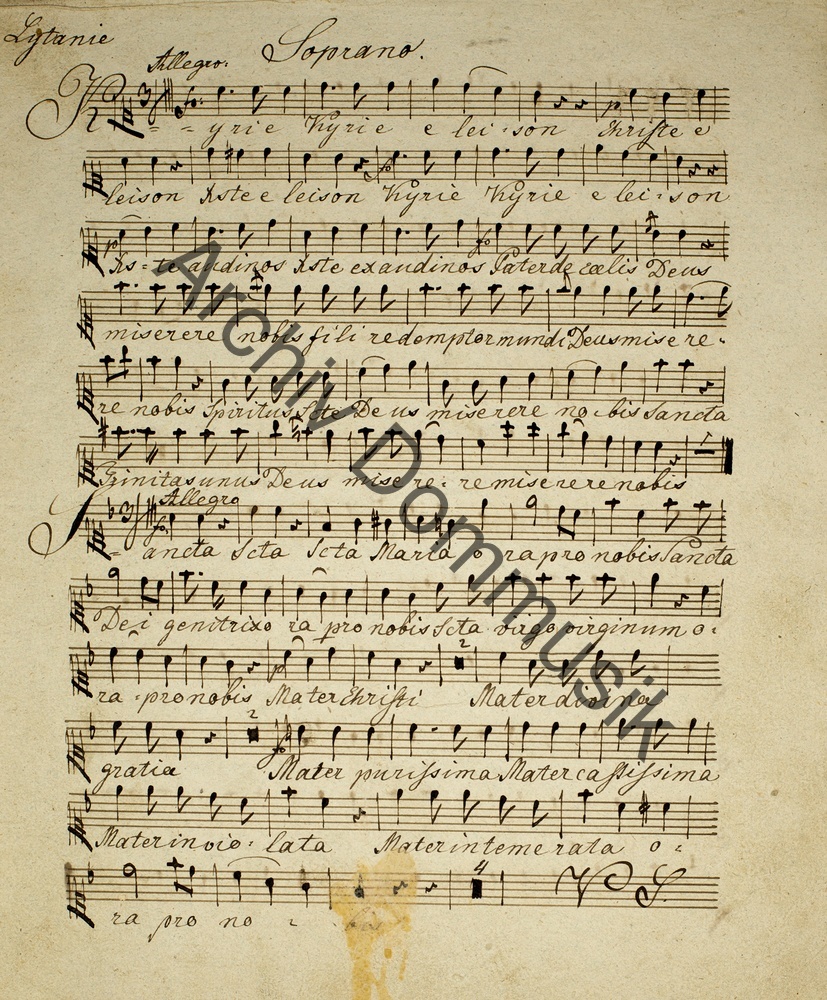 Lytanie
Soprano.
Allegro.
Kyrie Kyrie e lei-son Christe e
leison Xste e leison Kyrie Kyrie e lei-son
Xs-te audi nos Xste exaudi nos Pater de cœlis Deus
miserere nobis fili redemptor mundi Deus misere-
re nobis Spiritus Scte Deus miserere no-bis Sancta
Trinitas unus Deus mise re-re miserere nobis
Allegro
Sancta Scta Scta Maria o ra pro nobis Sancta
Dei genitrix o ra pro nobis Scta virgo virginum o-
2
ra-pro nobis Mater Christi Mater divina
2
gratia Mater purissima Mater castissima
Mater invio-lata Mater intemerata o-
4
V S.
ra pro no-bis
Archiv Dommusik